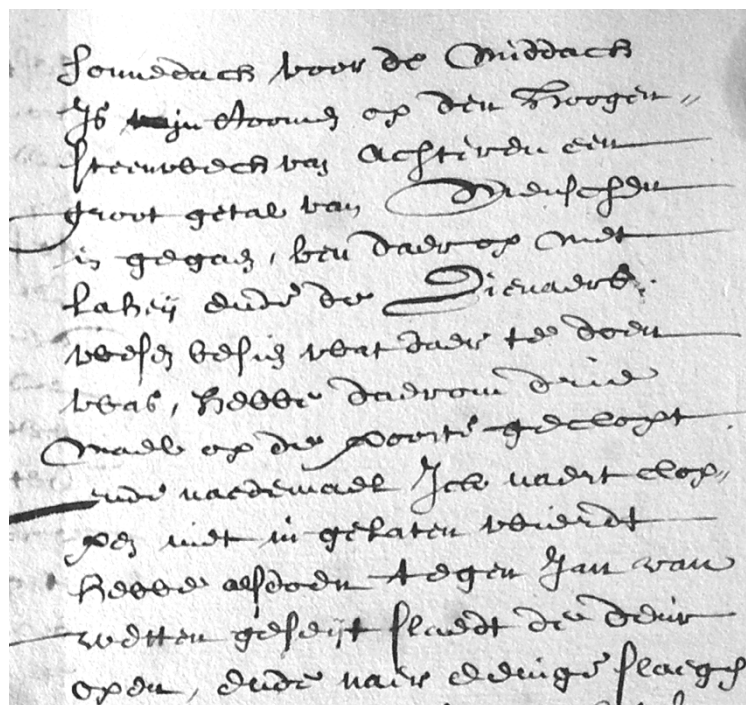 Sonnedach voor de Middach
Is in stoome op den Hoogen
steenwech van Achteren een
groot getal van Menschen
in gegaen, ben daer op met
lakeij ende de Dienaers
wesen besien wat daer te doen
was, hebbe daerom drie
mael op de poorte gecloopt
ende naedemael Ick naert clop-
pen niet in gelaten wierdt
hebbe alsdoen tegen Jan van
wetten geseijt slaedt de deur
open, ende naer eenige slaegh